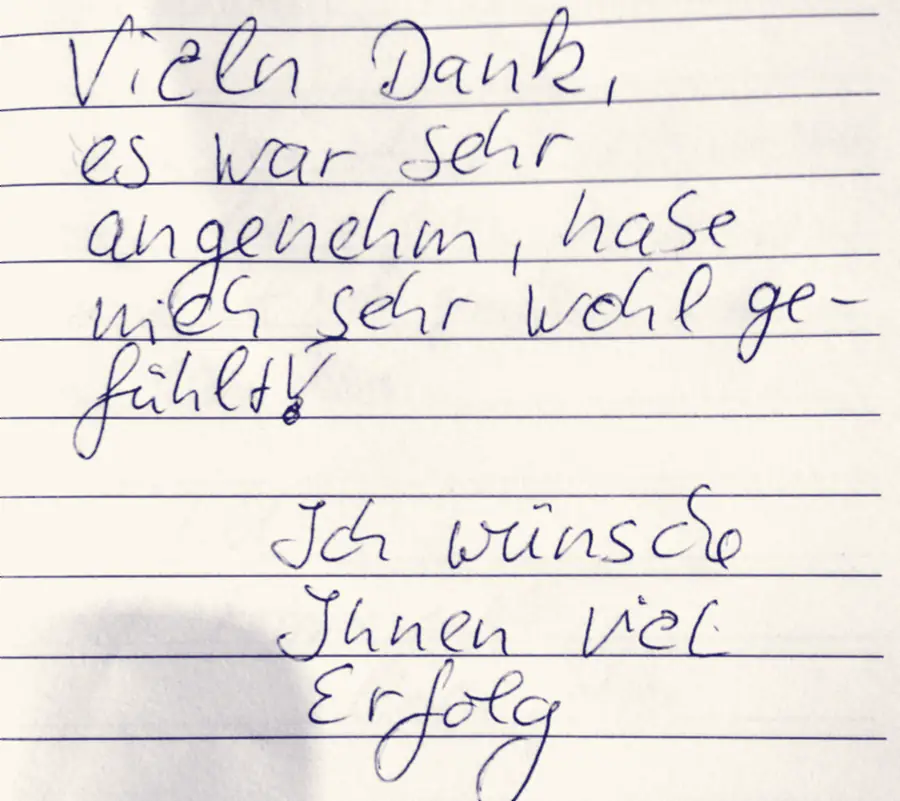 Vieln Dank,
es war sehr
angenehm, habe
mich sehr wohl ge-
fühlt!
Ich wünsche
Ihnen viel
Erfolg